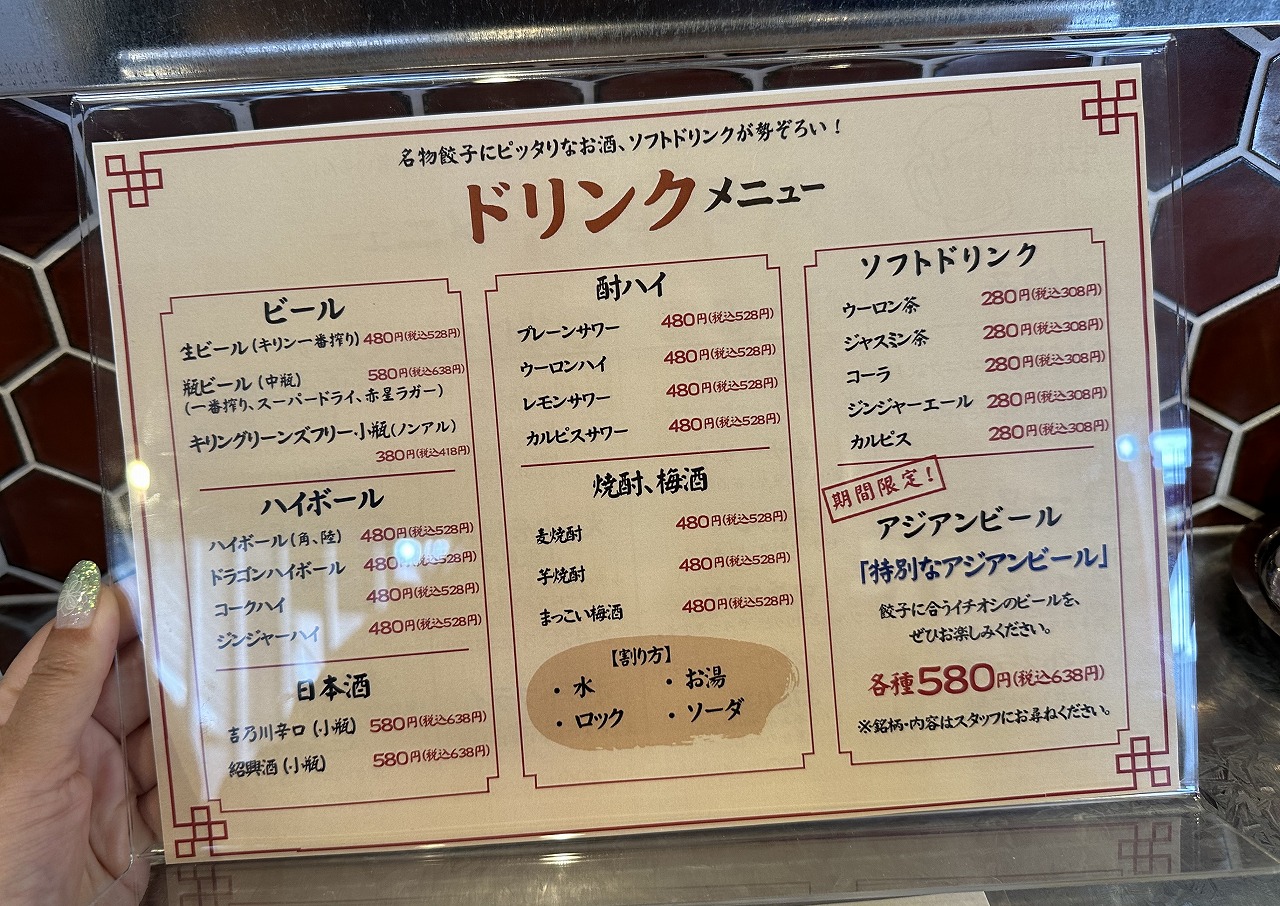 名物餃子にピッタリなお酒、ソフトドリンクが勢ぞろい！
ドリンクメニュー
ビール
生ビール(キリン一番搾り) 480円(税込528円)
瓶ビール(中瓶) 580円(税込638円)
(一番搾り、スーパードライ、赤星ラガー)
キリングリーンズフリー・小瓶(ノンアル)
380円(税込418円)
ハイボール
ハイボール(角、陸) 480円(税込528円)
ドラゴンハイボール 480円(税込528円)
コークハイ 480円(税込528円)
ジンジャーハイ 480円(税込528円)
日本酒
吉乃川辛口(小瓶) 580円(税込638円)
紹興酒(小瓶) 580円(税込638円)
酎ハイ
プレーンサワー 480円(税込528円)
ウーロンハイ 480円(税込528円)
レモンサワー 480円(税込528円)
カルピスサワー 480円(税込528円)
焼酎、梅酒
麦焼酎 480円(税込528円)
芋焼酎 480円(税込528円)
まっこい梅酒 480円(税込528円)
【割り方】
・水 ・お湯
・ロック ・ソーダ
ソフトドリンク
ウーロン茶 280円(税込308円)
ジャスミン茶 280円(税込308円)
コーラ 280円(税込308円)
ジンジャーエール 280円(税込308円)
カルピス 280円(税込308円)
期間限定！
アジアンビール
「特別なアジアンビール」
餃子に合うイチオシのビールを、
ぜひお楽しみください。
各種580円(税込638円)
※銘柄・内容はスタッフにお尋ねください。